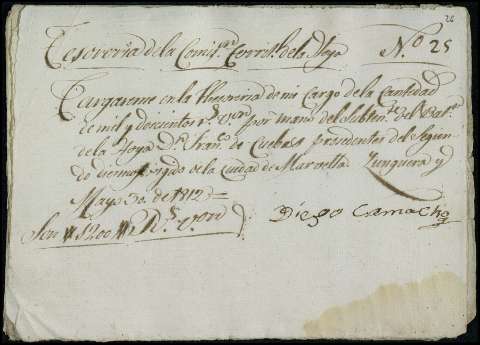 26
Tesoreria de la Comis.on Territ.l de la Hoya N.o 25
Cargaseme en la Thesoreria de mi Cargo de la Cantidad
de mil y doscientos r.s v.on por mano del Subten.te del Bat.n
de la Hoya D.n Fran.co de Cuebas procedentes del Segun
do diezmo de la ciudad de Marvella Junquera y
Mayo 30. de 1812 =
Son # 1200 # R.s v.on
Diego Camacho